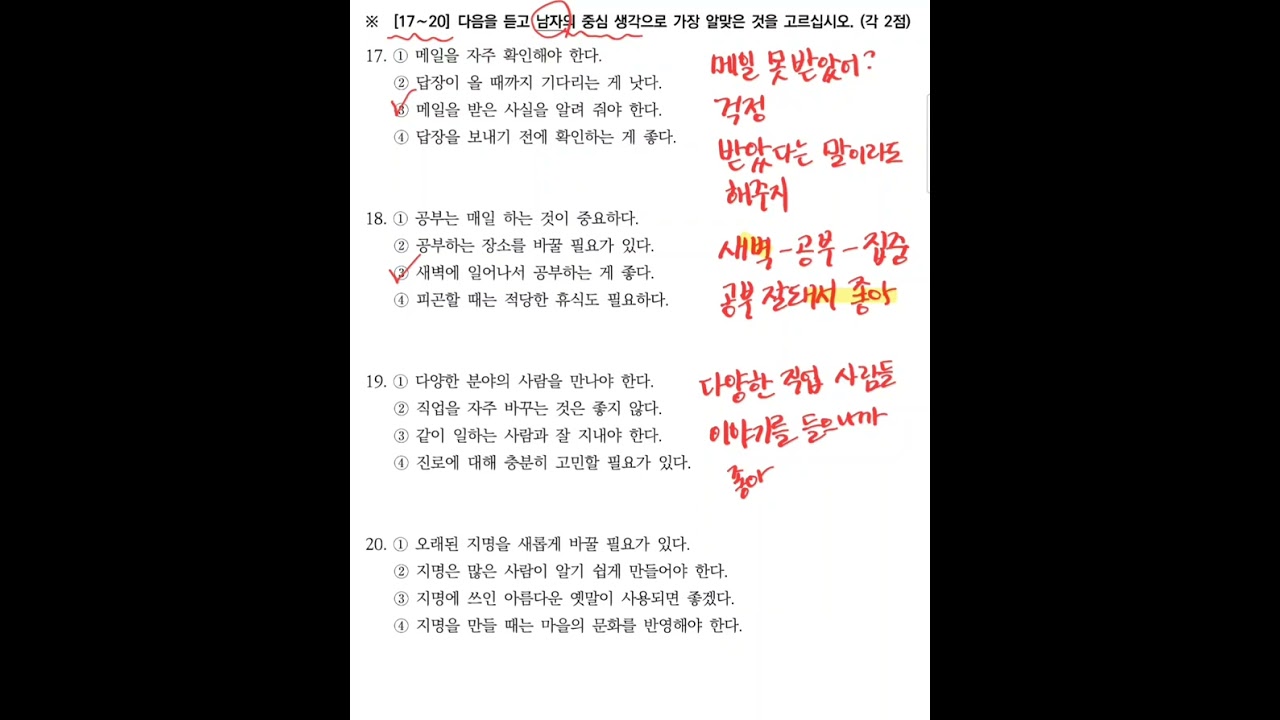 ※ [17~20] 다음을 듣고 남자의 중심 생각으로 가장 알맞은 것을 고르십시오. (각 2점)
17. ① 메일을 자주 확인해야 한다.
② 답장이 올 때까지 기다리는 게 낫다.
③ 메일을 받은 사실을 알려 줘야 한다.
④ 답장을 보내기 전에 확인하는 게 좋다.
메일 못 받았어?
걱정
받았다는 말이라도
해주지
18. ① 공부는 매일 하는 것이 중요하다.
② 공부하는 장소를 바꿀 필요가 있다.
③ 새벽에 일어나서 공부하는 게 좋다.
④ 피곤할 때는 적당한 휴식도 필요하다.
새벽 - 공부 - 집중
공부 잘돼서 좋아
19. ① 다양한 분야의 사람을 만나야 한다.
② 직업을 자주 바꾸는 것은 좋지 않다.
③ 같이 일하는 사람과 잘 지내야 한다.
④ 진로에 대해 충분히 고민할 필요가 있다.
다양한 직업 사람들
이야기를 들으니까
좋아
20. ① 오래된 지명을 새롭게 바꿀 필요가 있다.
② 지명은 많은 사람이 알기 쉽게 만들어야 한다.
③ 지명에 쓰인 아름다운 옛말이 사용되면 좋겠다.
④ 지명을 만들 때는 마을의 문화를 반영해야 한다.